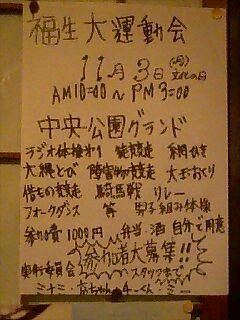 福生大運動会
11月3日(月)文化の日
AM10:00〜PM3:00
中央公園グランド
ラジオ体操オ1 徒競走 綱ひき
大縄とび 障害物競走 大玉おくり
借もの競走 騎馬戦 リレー
フォークダンス 等 男子組み体操
参加費 1000円 弁当 酒 自分で用意
参加者大募集!!
スタッフまで
実行委員会